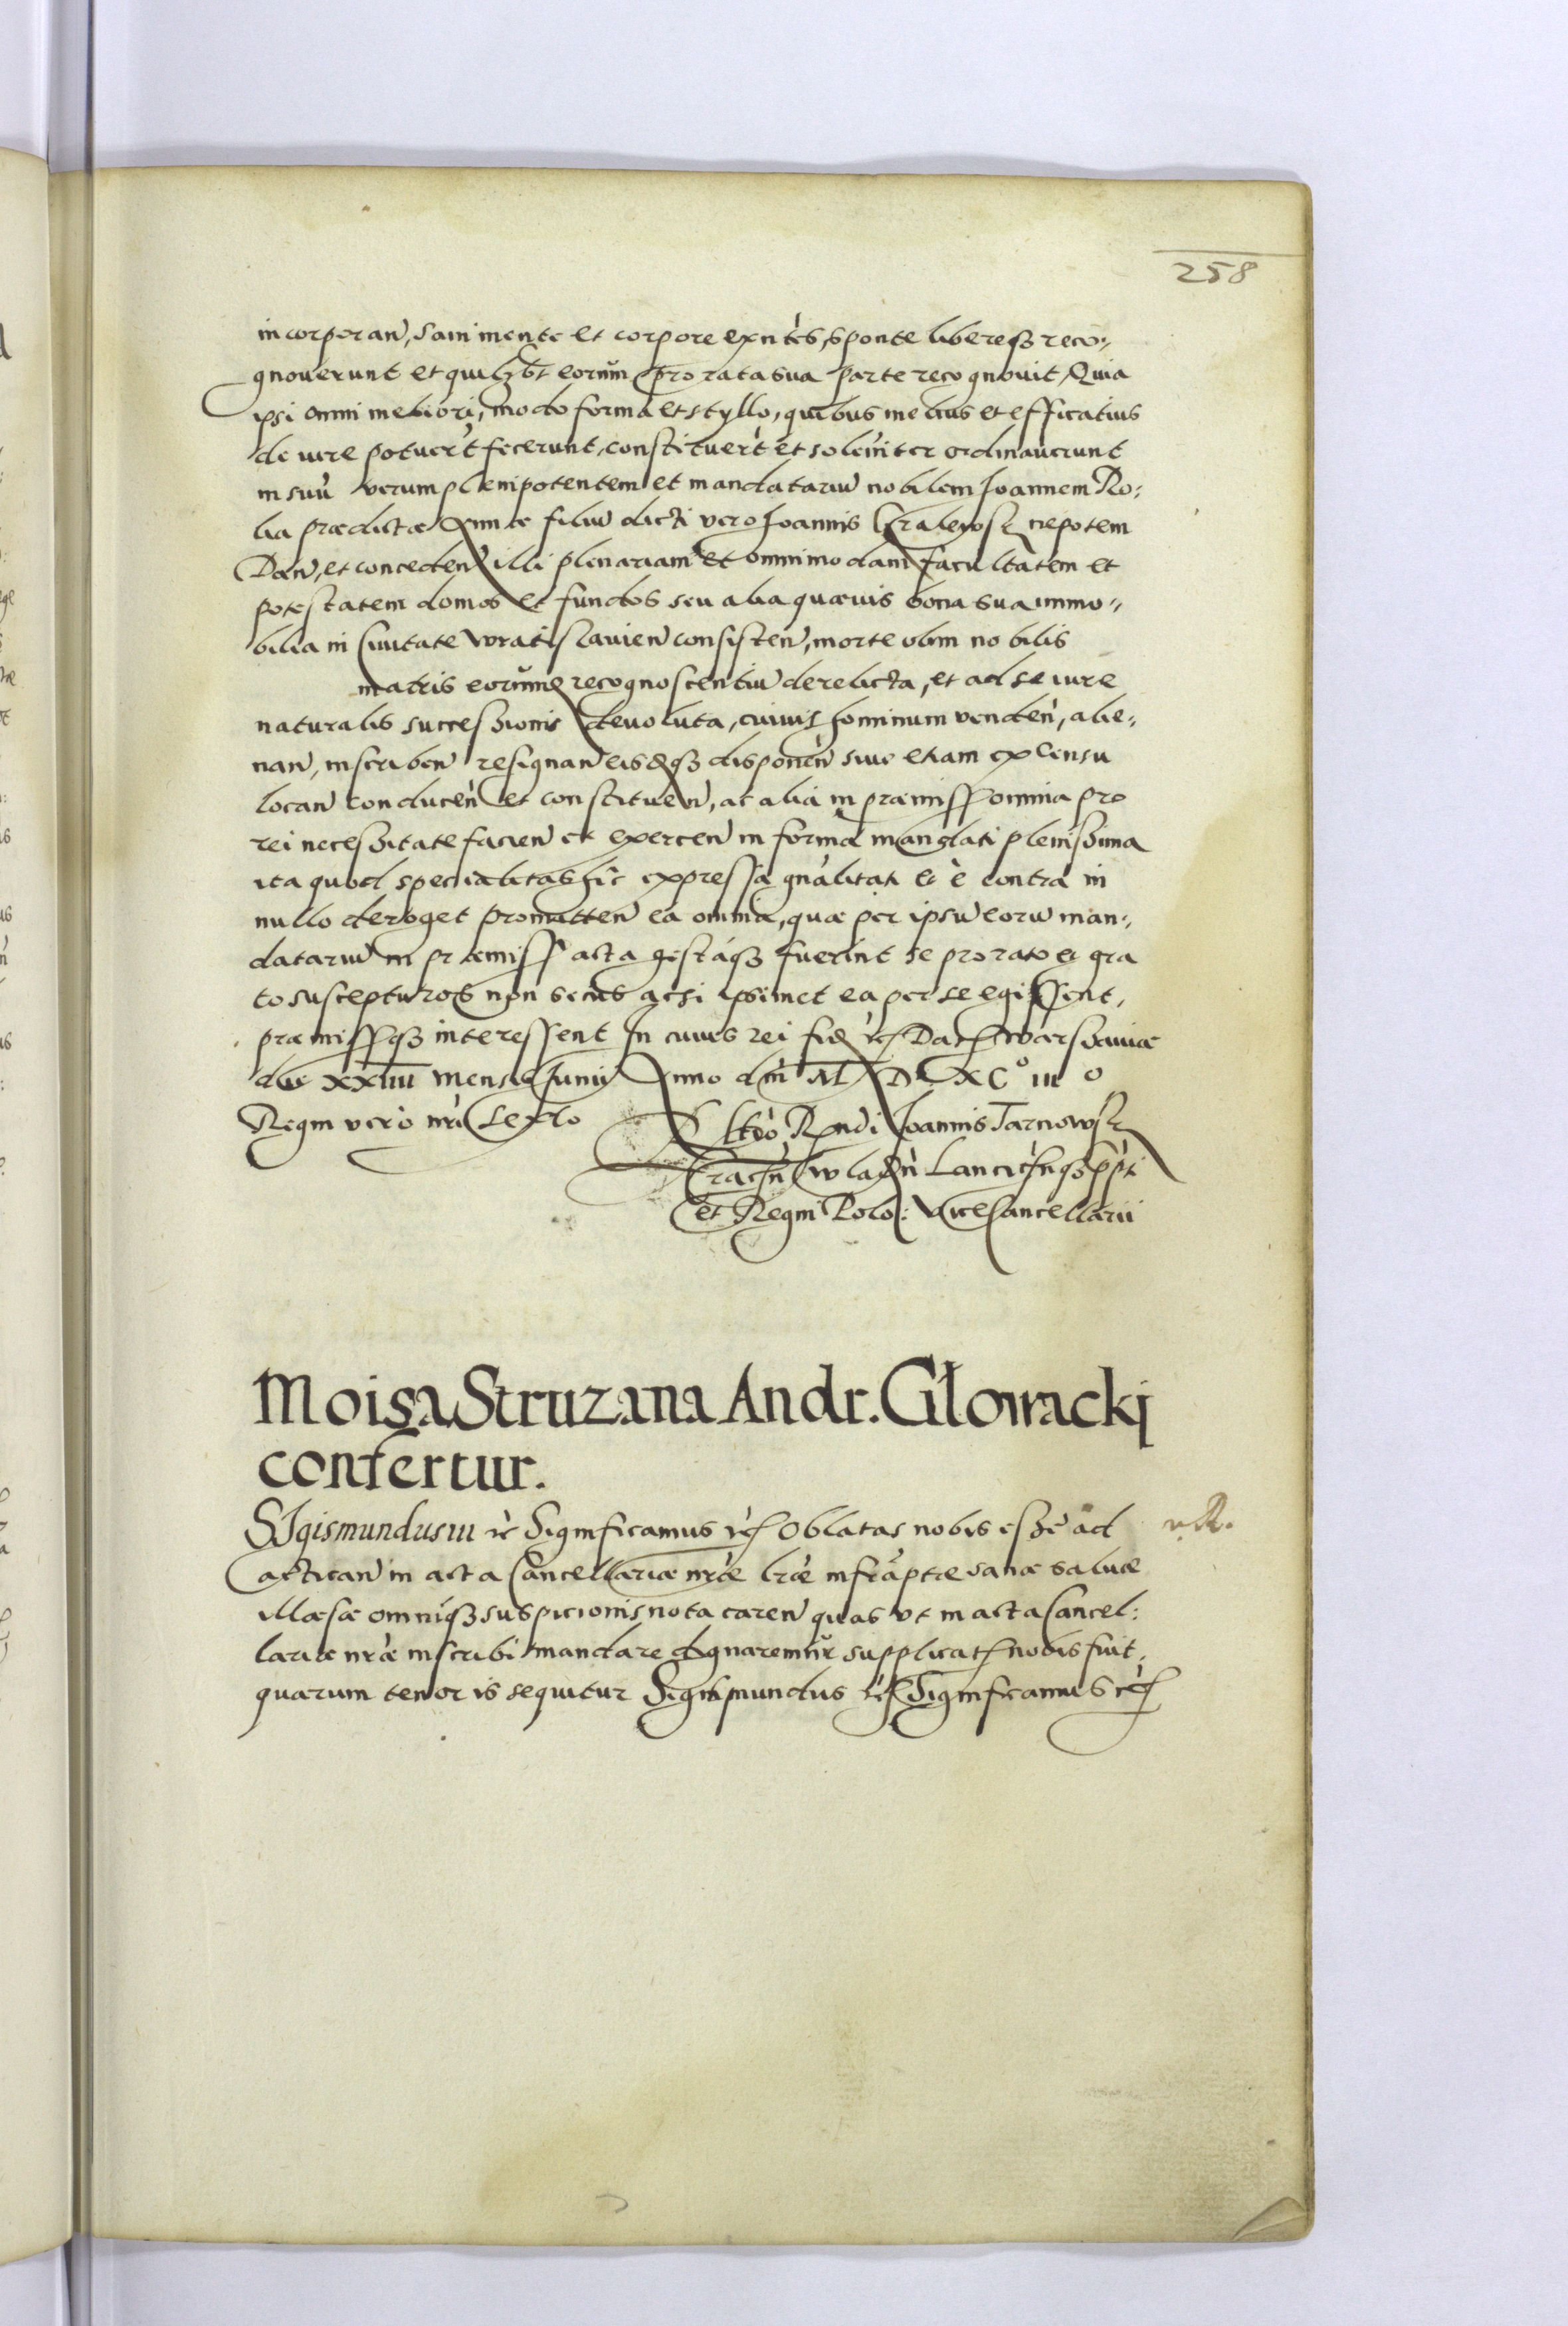 258
incorporan, sani mente et corpore exntes, sponte libereqꝫ reco-
gnoverunt et quilꝫbt eorum pro rata sua parte recognovit, Quia
ipsi omni meliori, modo forma et styllo, quibus melius et efficatius
de iure potuert fecerunt, constituert et soleniter ordinaverunt
in suu verum plenipotentem et mandatariu nobilem Joannem Ro:
lia prædictæ Annæ filiu dicti vero Joannis nepotem
Dan, et conceden illi plenariam et omnimodam facultatem et
potestatem domos et fundos seu alia quævis bona sua immo-
bilia in Civitate Wratislavien consisten, morte olim nobilis
matris eorundē recognoscentiu derelicta, et ad se iure
naturalis successionis devoluta, cuivis hominum venden, alie-
nan, inscriben resignan eisdēqꝫ disponen sive etiam ex censu
locan conducen et constituen, ac alia in præmiss omnia pro
rei necessitate facien et exercen in forma mandati plenissima
ita quod specialitas hic expressa gnalitati et è contra in
nullo deroget promitten ea omnia, quæ per ipsu eoru man-
datariu in præmiss acta gestaqꝫ fuerint se pro rato et gra
to suscepturos non secus acsi ipsimet ea per se egissent,
præmissqꝫ interessent In cuius rei fidē rc Dat Warsaviæ
die XXIIII mensis Junij Anno dni M D XC° III°
Regni vero nri Sexto
Rltio Rndi Joannis Tarnowsk
Cracn Wladn Lancicnqꝫ ppti
et Regni Polo: ViceCancellarii
Moisa Struzana Andr. Glowackj
confertur.
SIgismundus III rc Significamus rc Oblatas nobis esse ad v. R.
actican in acta Cancellariæ nræ lræ infraptæ sanæ salvæ
illæsæ omniqꝫ suspicionis nota caren quas vt in acta Cancel:
lariæ nræ inscribi mandare dignaremur supplicat nobis fuit,
quarum tenor is sequitur Sigismundus rc Significamus rc